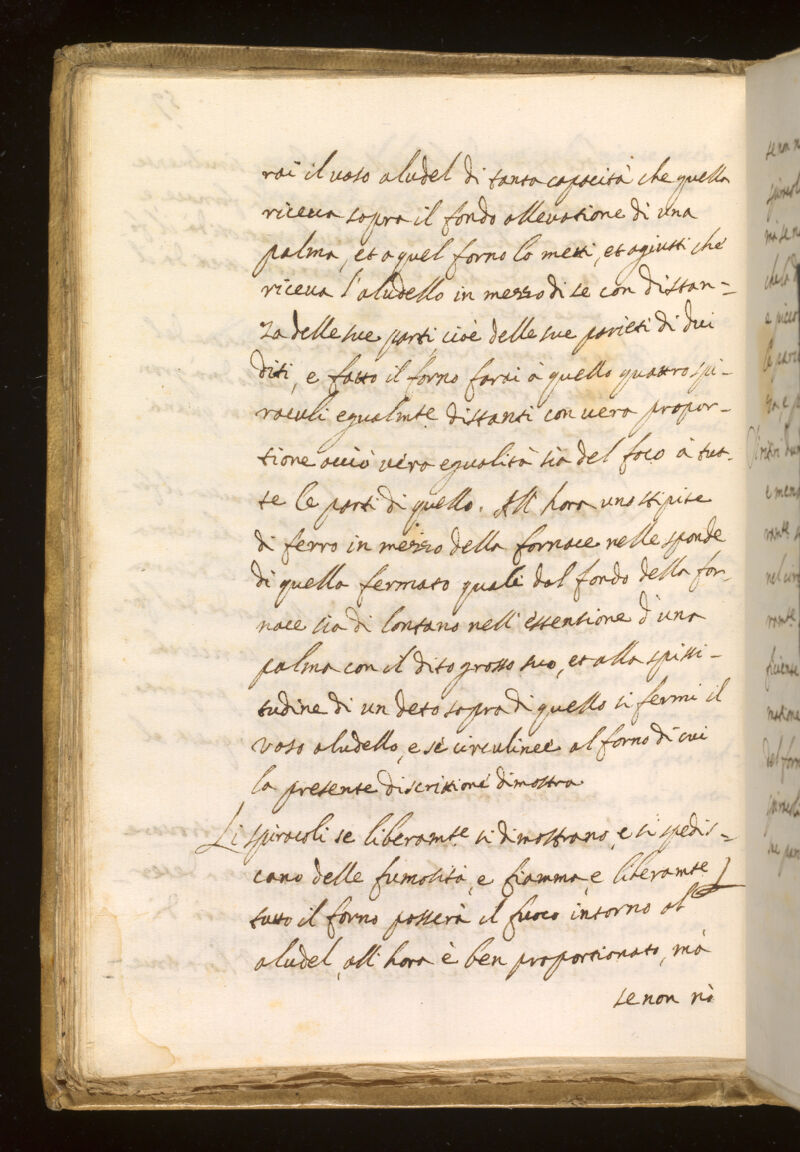 rai il vaso aludel di tanta capacità che quella
riceva sopra il fondo allevatione di una
palma, et a quel forno lo metti, et agiusti che
riceva l'aludello in mezzo di se con distan=
za delle sue parti cioè delle sue parieti di dui
diti, e fatto il forno farai à quello quattro spi-
raculi egualmte distanti con vera propor-
tione acciò vera egualità sia del foco à tut-
te le parti di quello. All hora uno stipite
di ferro in mezzo della fornace nelle sponde
di quella fermato quale dal fondo della for-
nace sia di lontano nell'estensione d'una
palma con il dito grosso suo, et alla spissi-
tudine di un deto sopra di quello si fermi il
vaso aludello, e se circulinee al forno di cui
la presente discrittione dimostra
Li spiracoli se liberamte si dimostrano, e si spedis=
cano delle fumosità, e fiamma, e liberamte
tutto il forno passerà il fuoco intorno al
aludel, all hora è ben proportionato, mà
se non nò